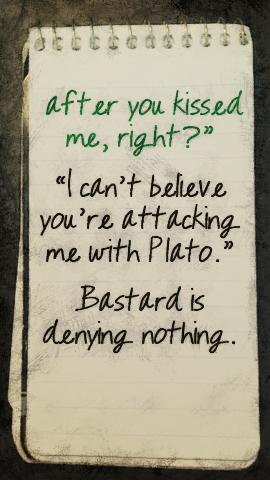 after you kissed
me, right?”
“I can’t believe
you’re attacking
me with Plato.”
Bastard is
denying nothing.